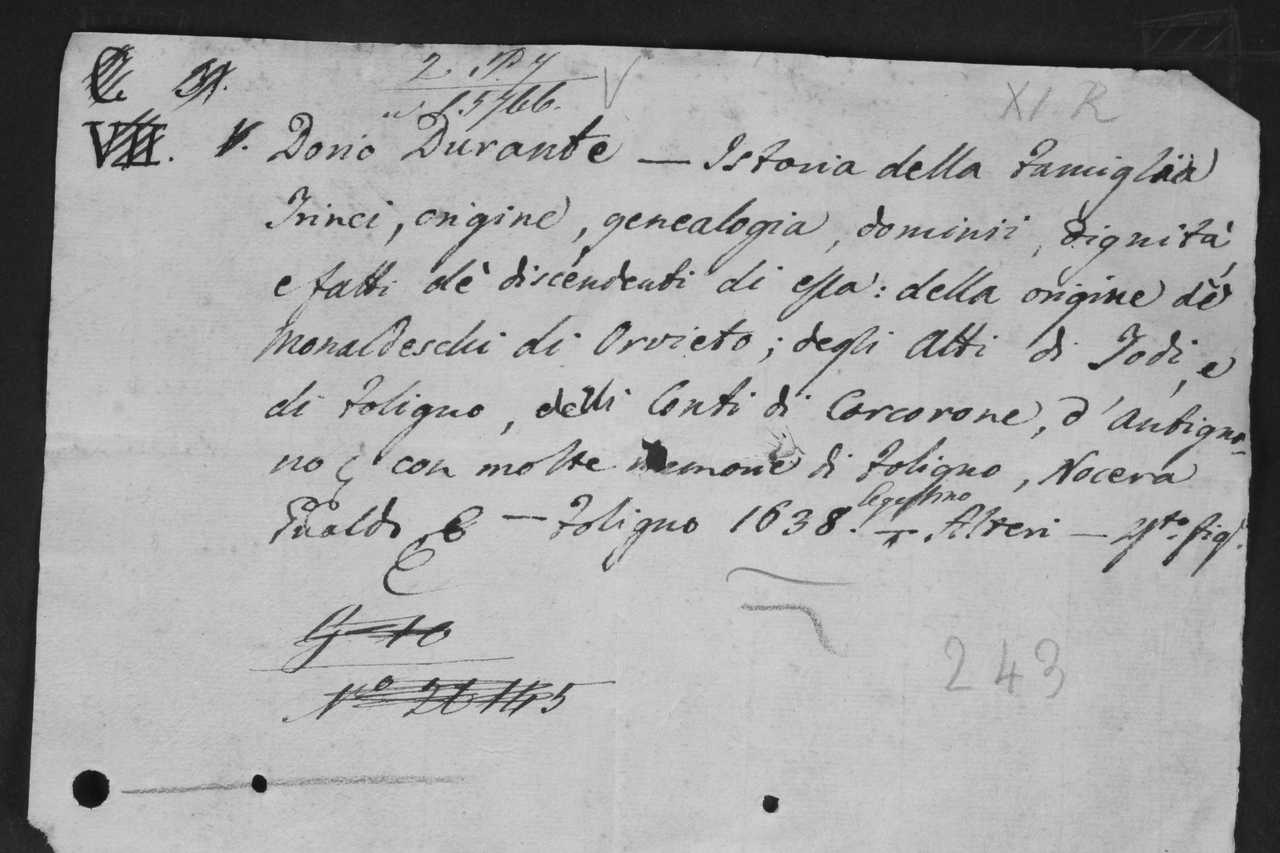 2 P. 4
XI. R
VII. V. Dorio Durante — Istoria della Famiglia
Trinci, origine, genealogia, dominii, dignitá,
e fatti dè discendenti di essa: della origine dè
Monaldeschi di Orvieto; degli Atti di Todi, e
di Foligno, delli Conti di Corcorone, d'Antigna-
no; con molte memorie di Foligno, Nocera
Gualdo &c — Foligno 1638. Agostino Alteri — 4to. fig.
No 21145
243